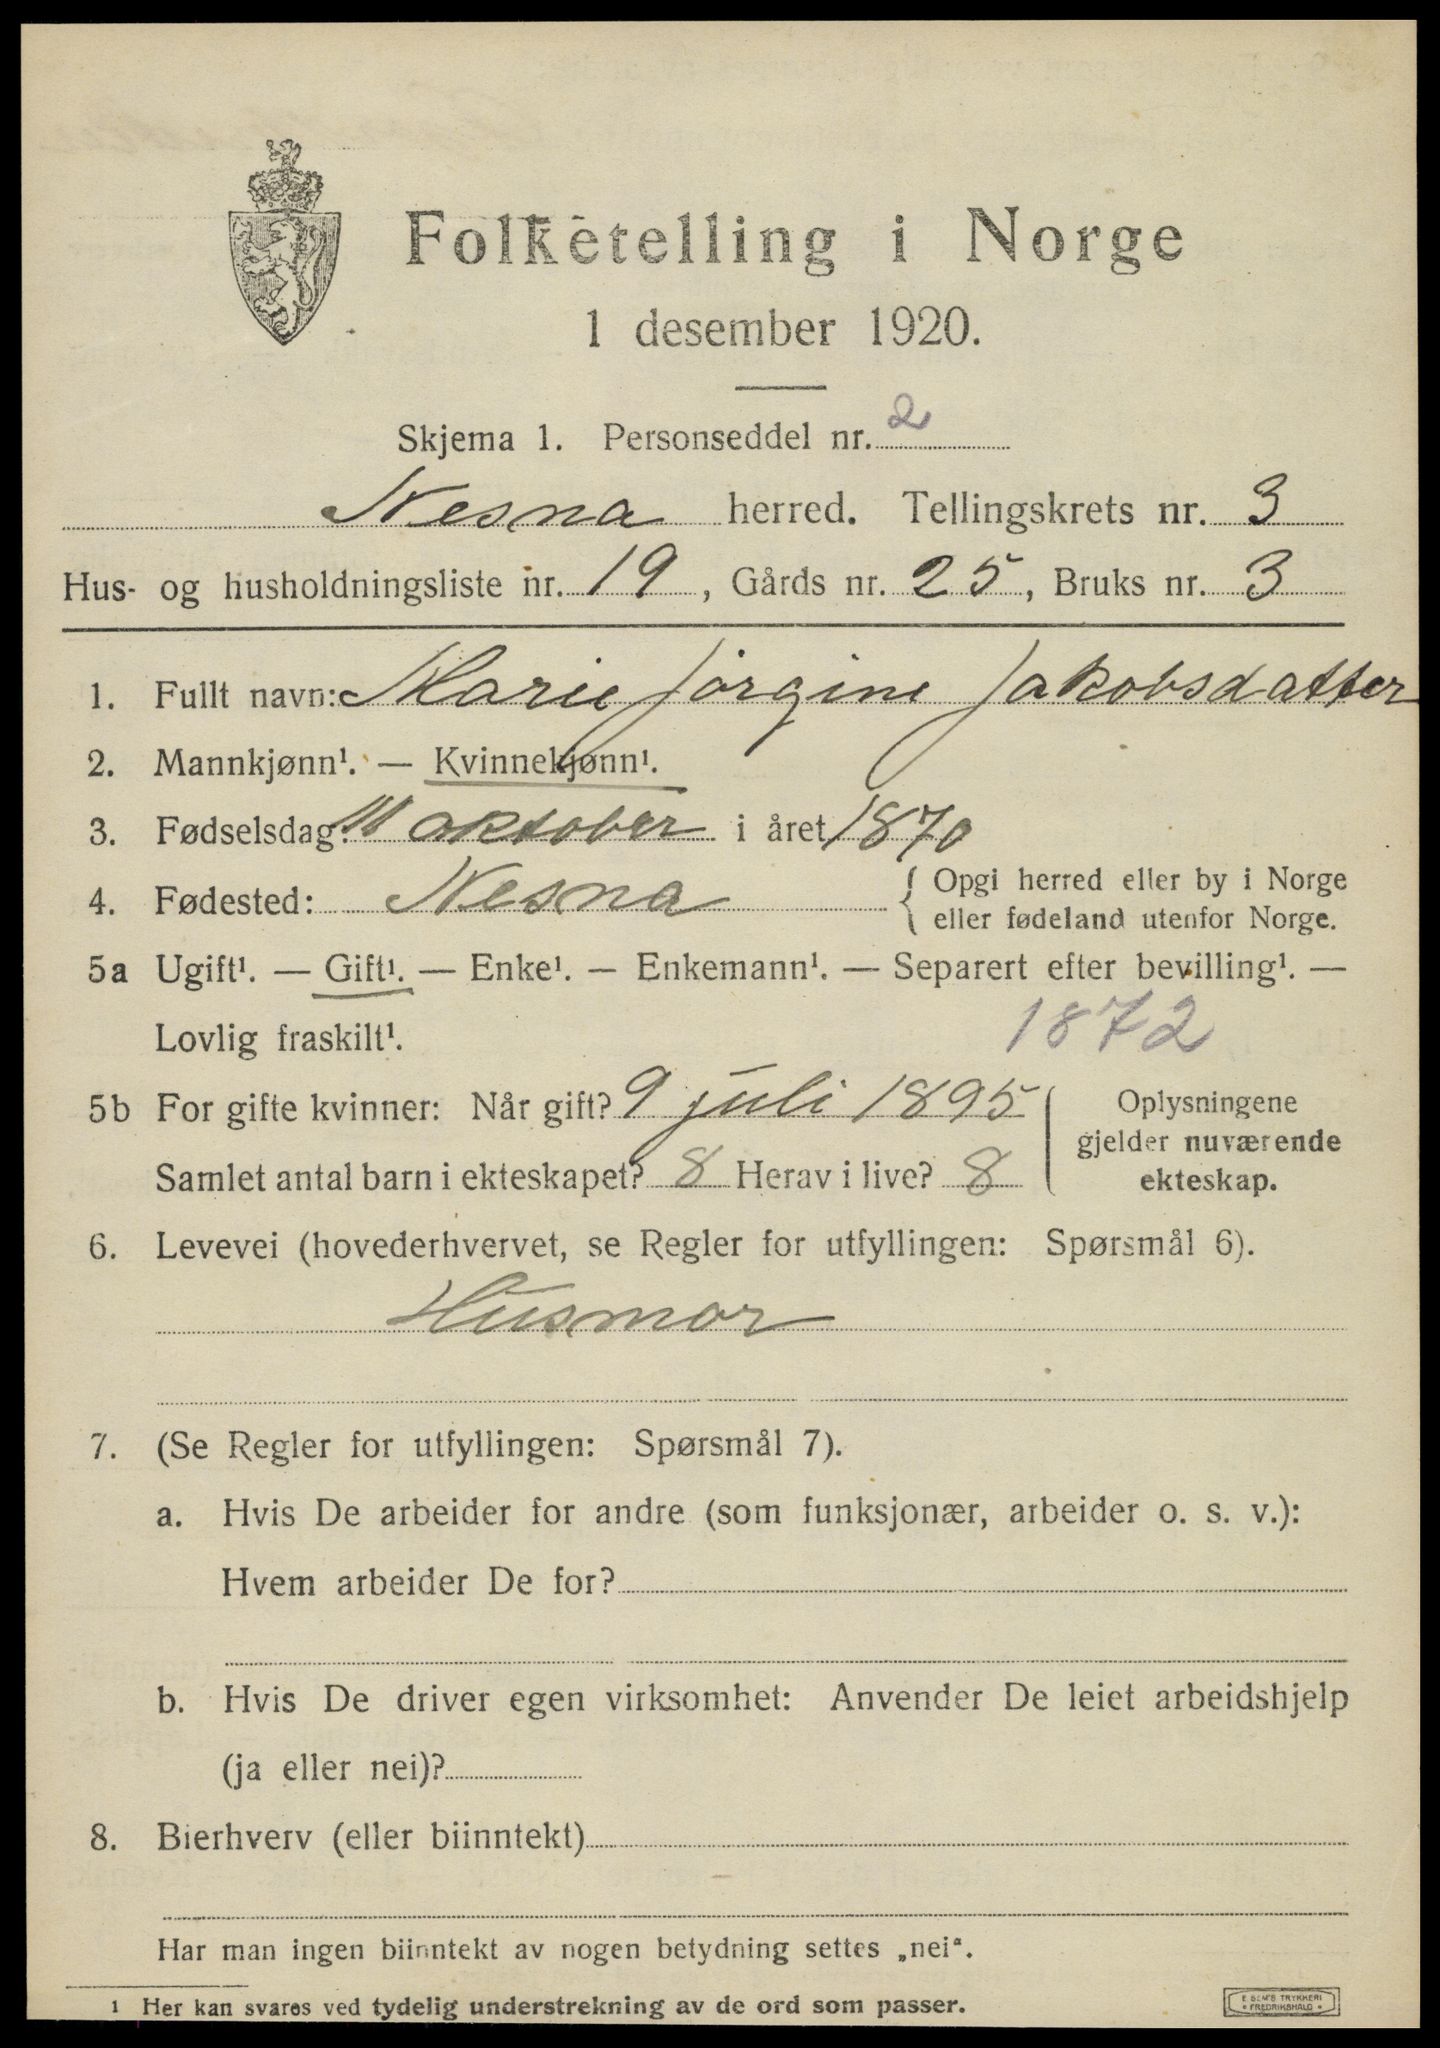 Folketelling i Norge
1 desember 1920.
Skjema 1. Personseddel nr. 2
Nesna herred. Tellingskrets nr. 3
Hus- og husholdningsliste nr. 19, Gårds nr. 25, Bruks nr. 3
1. Fullt navn: Marie Jørgine Jakobsdatter
2. Mannkjønn¹. — Kvinnekjønn¹.
3. Fødselsdag: oktober i året 1870
4. Fødested: Nesna { Opgi herred eller by i Norge
eller fødeland utenfor Norge.
5a Ugift¹. — Gift¹. — Enke¹. — Enkemann¹. — Separert efter bevilling¹. —
Lovlig fraskilt¹. 1872
5b For gifte kvinner: Når gift? 9 juli 1895
Samlet antal barn i ekteskapet? 8 Herav i live? 8
Oplysningene
gjelder nuværende
ekteskap.
6. Levevei (hovederhvervet, se Regler for utfyllingen: Spørsmål 6).
Husmor
7. (Se Regler for utfyllingen: Spørsmål 7).
a. Hvis De arbeider for andre (som funksjonær, arbeider o. s. v.):
Hvem arbeider De for?
b. Hvis De driver egen virksomhet: Anvender De leiet arbeidshjelp
(ja eller nei)?
8. Bierhverv (eller biinntekt)
Har man ingen biinntekt av nogen betydning settes „nei“.
¹ Her kan svares ved tydelig understrekning av de ord som passer.
E SEM'S TRYKKERI
• FREDRIKSHALD •